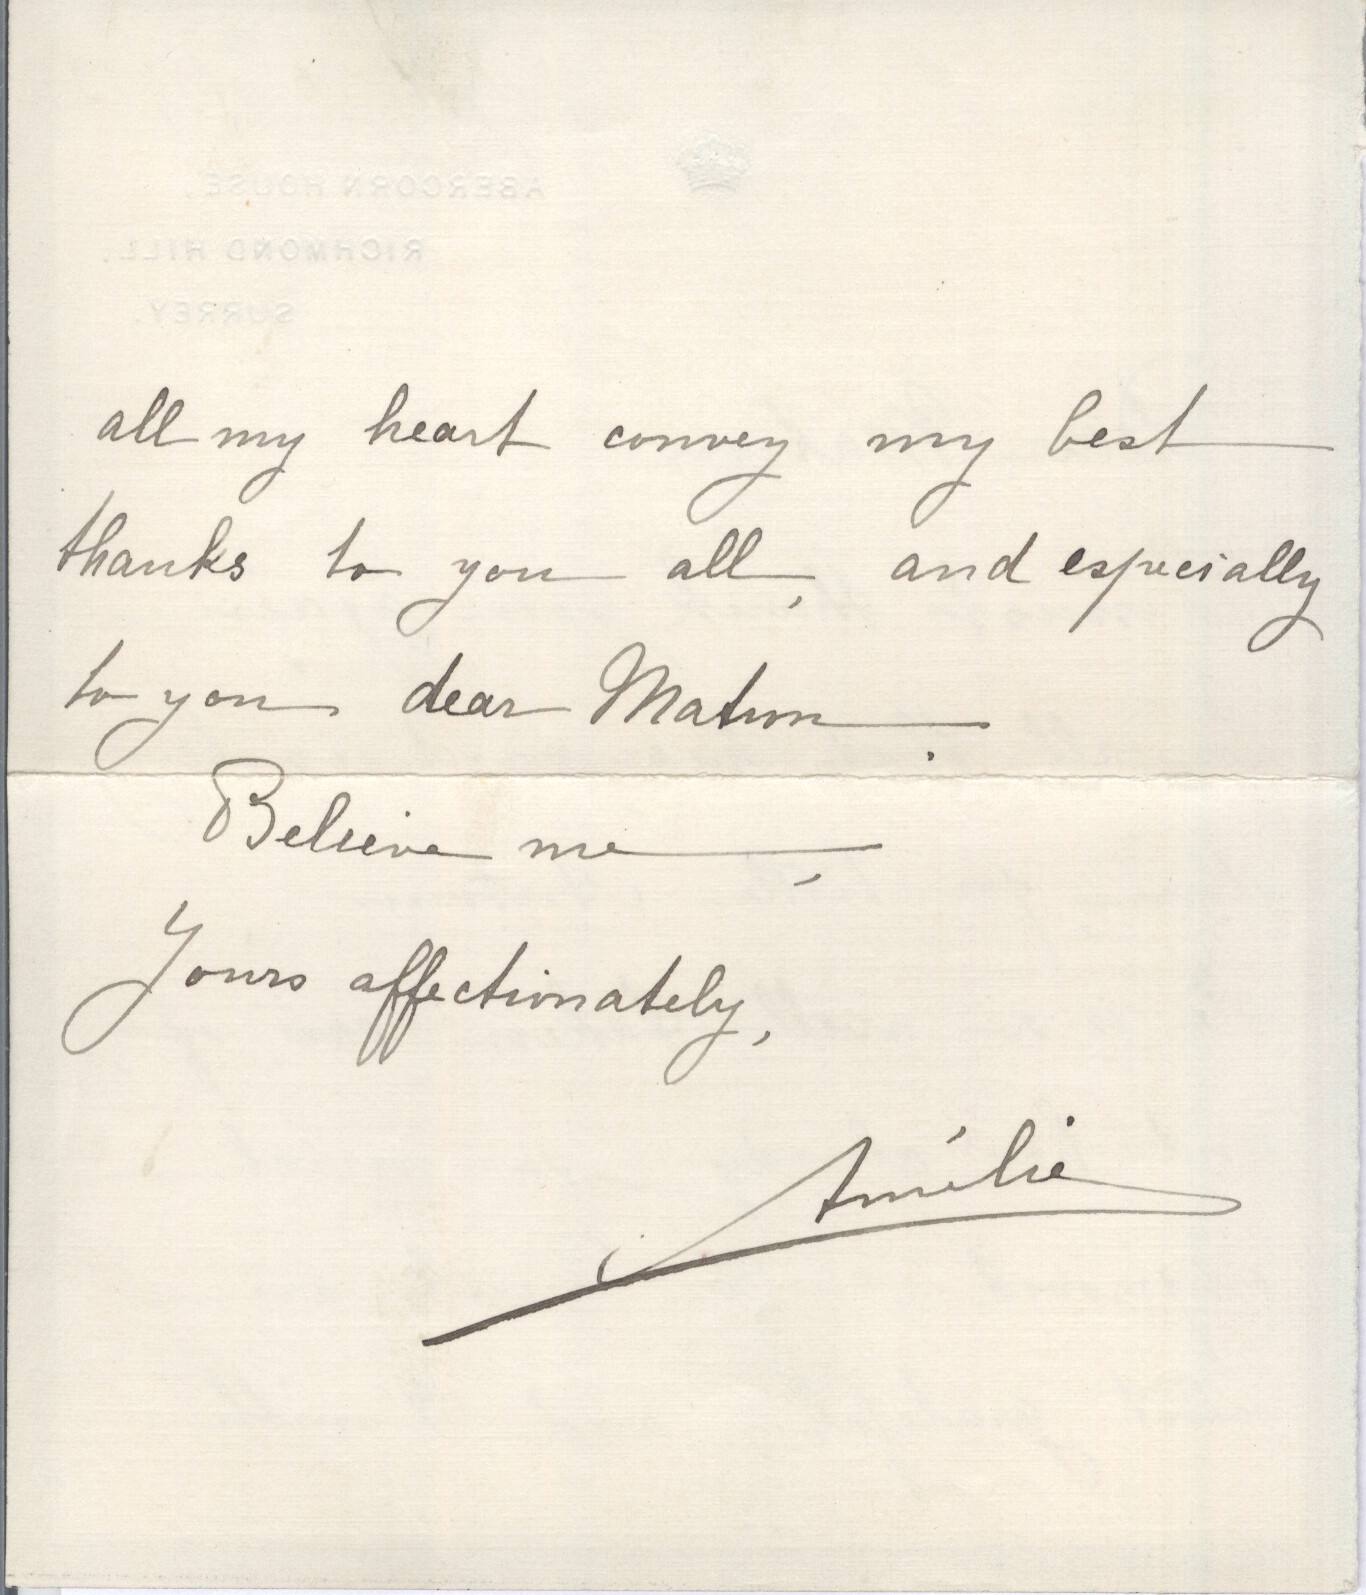 ABERCORN HOUSE,
RICHMOND HILL,
SURREY.
all my heart convey my best
thanks to you all, and especially
to you dear Matron.
Believe me,
Yours affectionately,
Amélie